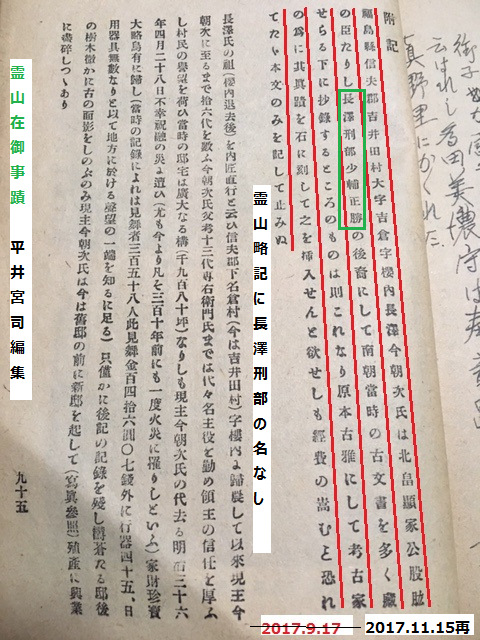 附記
福島縣信夫郡吉井田村大字吉倉字樓內長澤今朝次氏は北畠顯家公股肱
の臣たりし長澤刑部少輔正勝の後裔にして南朝當時の古文書を多く藏
せらる下に抄錄するところのものは則これなり原本古雅にして考古家
の爲に其眞蹟を石に刻して之を挿入せんと欲せしも經費の嵩むと恐れ
てたゞ本文のみを記して止みぬ
霊山略記に長澤刑部の名なし
長澤氏の祖(樓內退去後)を內匠直行と云ひ信夫郡下名倉村(今は吉井田村)字樓內に歸農して以來現主今
朝次に至るまで拾六代を歇ふ今朝次氏父考十三代専右衛門氏までは代々名主役を勤め領主の信任を厚ふ
し村民の譽望を荷ひ當時の邸宅は廣大なる構(千九百八十坪)なりしも現主今朝次氏の代去る明治三十六
年四月二十八日不幸祝融の災ょ遭ひ(尤も今より凡そ三百十年前にも一度火災に罹りしといふ)家財珍寶
大略烏有に歸し(當時の記錄によれは見舞者三百五十八人此見舞金百四拾六圓〇七錢外に行器四十五、日
用器具無數なりと以て地方に於ける聲望の一端を知るに足る)只僅かに後記の記錄を殘し欝蒼たる邸後
の樹木微かに古の面影をしのぶのみ現主今朝次氏は今は舊邸の前に新邸を起して(寫眞參照)殖產に興業
に しつゝあり
九十五
霊山在御事蹟 平井宮司編集
真野里にかくれた
2017.9.17
2017.11.15再